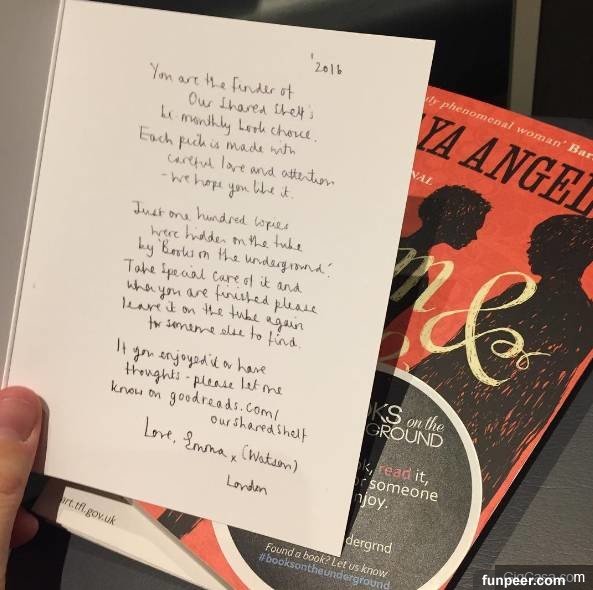 '2016
You are the finder of
Our Shared Shelf's
bi-monthly book choice.
Each pick is made with
careful love and attention
- we hope you like it.
Just one hundred copies
were hidden on the tube
by 'Books on the underground'.
Take special care of it and
when you are finished please
leave it on the tube again
for someone else to find.
If you enjoyed it or have
thoughts - please let me
know on goodreads.com/
oursharedshelf
Love, Emma x (Watson)
London
phenomenal woman' Bar
YA ANGEL
NAL
m &
KS on the
GROUND
k, read it,
or someone
njoy.
dergrnd
Found a book? Let us know
#booksontheunderground
art.tfl.gov.uk
funpeer.com